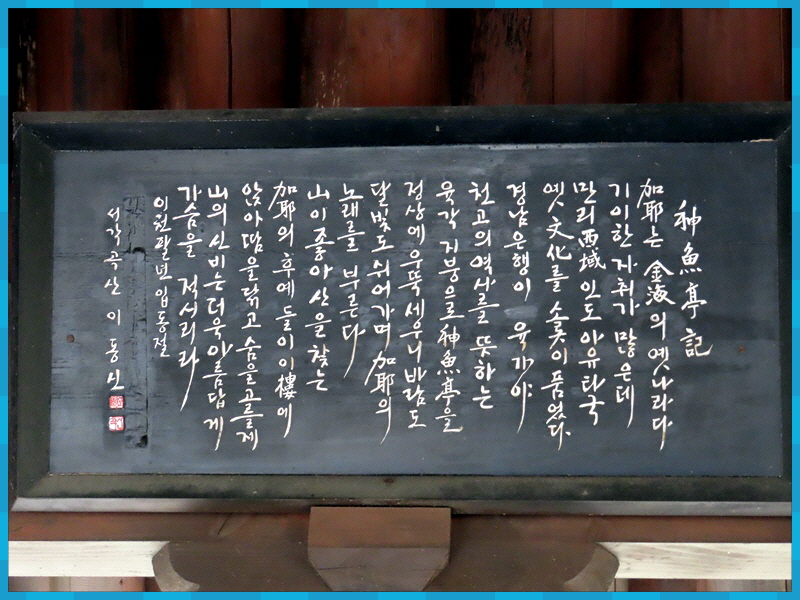 神魚亭記
加耶는 金海의 옛나라다
기이한 자취가 많은데
만리西域 인도 아유타국
옛文化를 솔곳이 품었다.
경남은행이 육가야
천고의역사를 뜻하는
육각 지붕으로 神魚亭을
정상에우뚝세우니바람도
달빛도쉬어가며 加耶의
노래를 부른다
山이좋아산을찾는
加耶의 후예들이이樓에
앉아땀을닦고숨을고를제
山의 신비는더욱아름답게
가슴을 적셔리라
이천팔년입동절
서각 곡산 이 동신